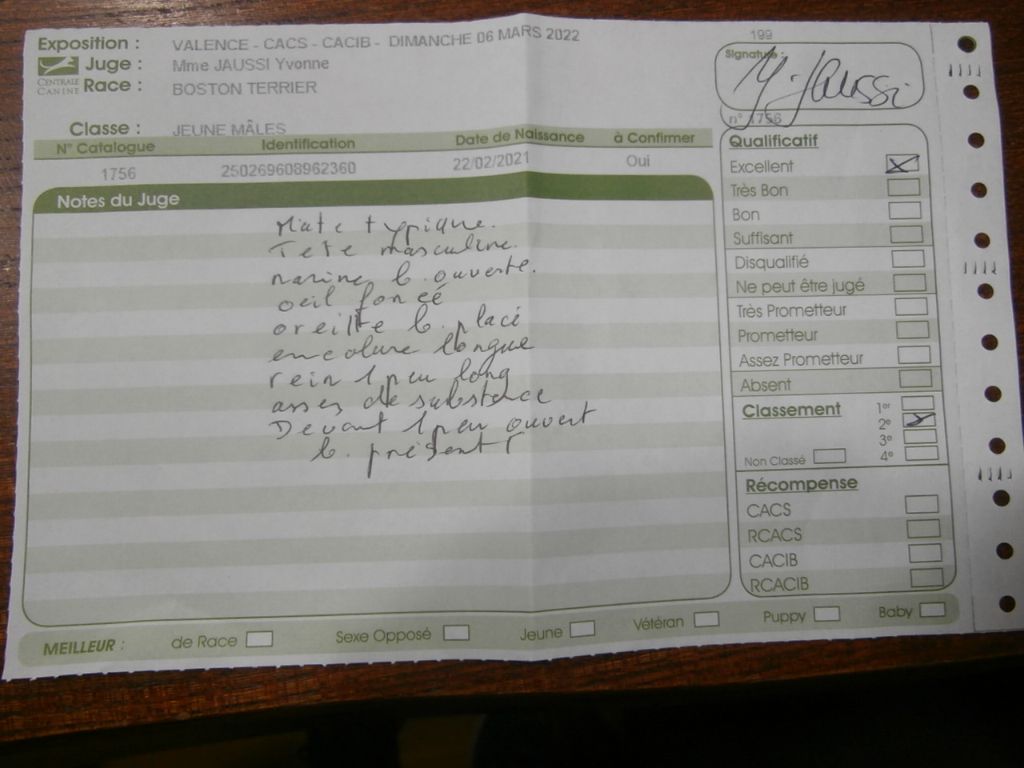 Exposition : VALENCE - CACS - CACIB - DIMANCHE 06 MARS 2022
Juge : Mme JAUSSI Yvonne
CENTRALE CANINE
Race : BOSTON TERRIER
Classe : JEUNE MÂLES
199
Signature :
Y. Jaussi
n° 1756
N° Catalogue Identification Date de Naissance à Confirmer
1756 250269608962360 22/02/2021 Oui
Notes du Juge
typique.
Tete masculine.
narine b. ouverte.
oeil foncé
oreille b. placé
encolure longue
rein 1 peu long
asses de substance
Devant 1 peu ouvert
b. présent
Qualificatif
Excellent
Très Bon
Bon
Suffisant
Disqualifié
Ne peut être jugé
Très Prometteur
Prometteur
Assez Prometteur
Absent
Classement 1er
2e
3e
Non Classé 4e
Récompense
CACS
RCACS
CACIB
RCACIB
MEILLEUR : de Race Sexe Opposé Jeune Vétéran Puppy Baby